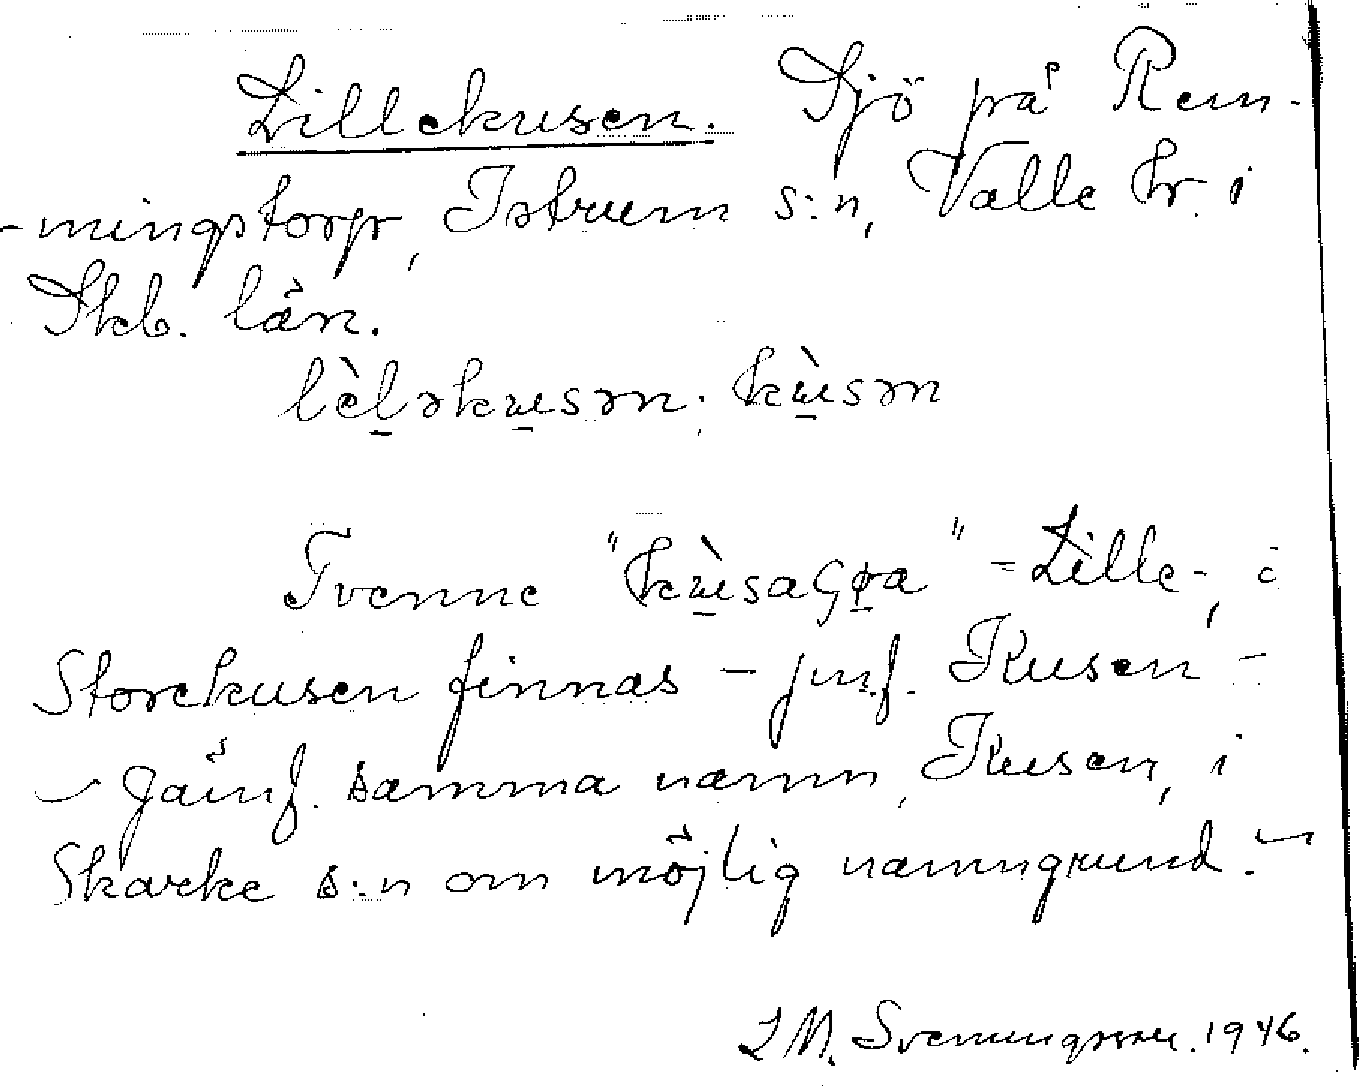 Lillekusen. Sjö på Rem-
-mingstorp, Istrum s:n, Valle hr. i
Skb. län.
lèl̠əku̠sən; kù̠sən
Tvenne "kù̠saɢρ̠a" - Lille-, o
Storekusen finnas - jmf. Kusen -
- Jämf. samma namn, Kusen, i
Skarke s:n om möjlig namngrund. -
J M. Svenungsson. 1946.